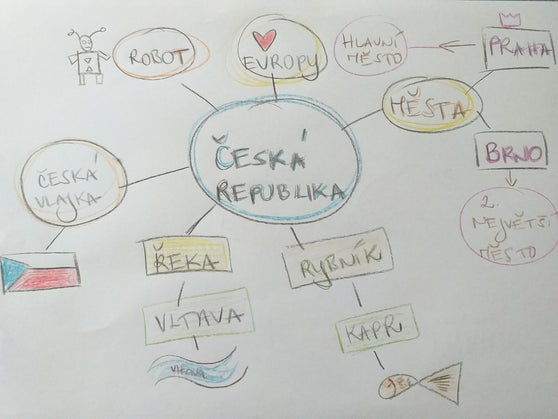 ROBOT
EVROPY
HLAVNÍ
MĚSTO
PRAHA
MĚSTA
ČESKÁ
REPUBLIKA
BRNO
ČESKÁ
VLAJKA
2.
NEJVĚTŠÍ
MĚSTO
ŘEKA
RYBNÍK
VLTAVA
KAPR